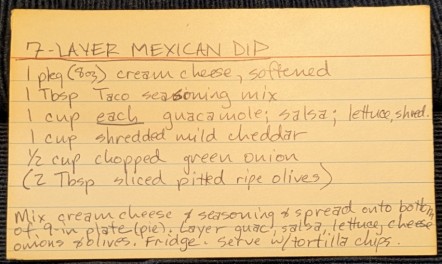 7-LAYER MEXICAN DIP
1 pkg (8oz) cream cheese, softened
1 Tbsp Taco seasoning mix
1 cup each guacamole; salsa; lettuce, shred.
1 cup shredded mild cheddar
½ cup chopped green onion
(2 Tbsp sliced pitted ripe olives)
Mix cream cheese & seasoning & spread onto bottom
of 9-in plate (pie). Layer guac, salsa, lettuce, cheese
onions & olives. Fridge. Serve w/tortilla chips.